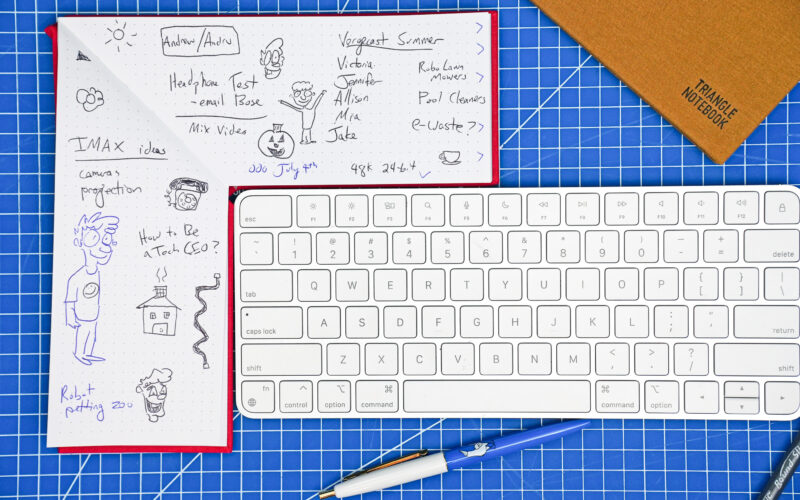 Andrew/Andru
Headphone Test
- email Bose
Mix Video
Vergecast Summer
Victoria
Jennifer
Allison
Mia
Jake
Robo Lawn
Mowers
Pool Cleaners
e-Waste?
OOO July 4th
48k 24-bit
IMAX ideas
cameras
projection
How to Be
a Tech CEO?
Robot
petting zoo
TRIANGLE
NOTEBOOK
esc F1 F2 F3 F4 F5 F6 F7 F8 F9 F10 F11 F12
~ ! @ # $ % ^ & * ( ) _ +
` 1 2 3 4 5 6 7 8 9 0 - = delete
tab Q W E R T Y U I O P { } |
[ ] \
caps lock A S D F G H J K L : " return
; '
shift Z X C V B N M < > ? shift
, . /
fn control option command command option
Round St